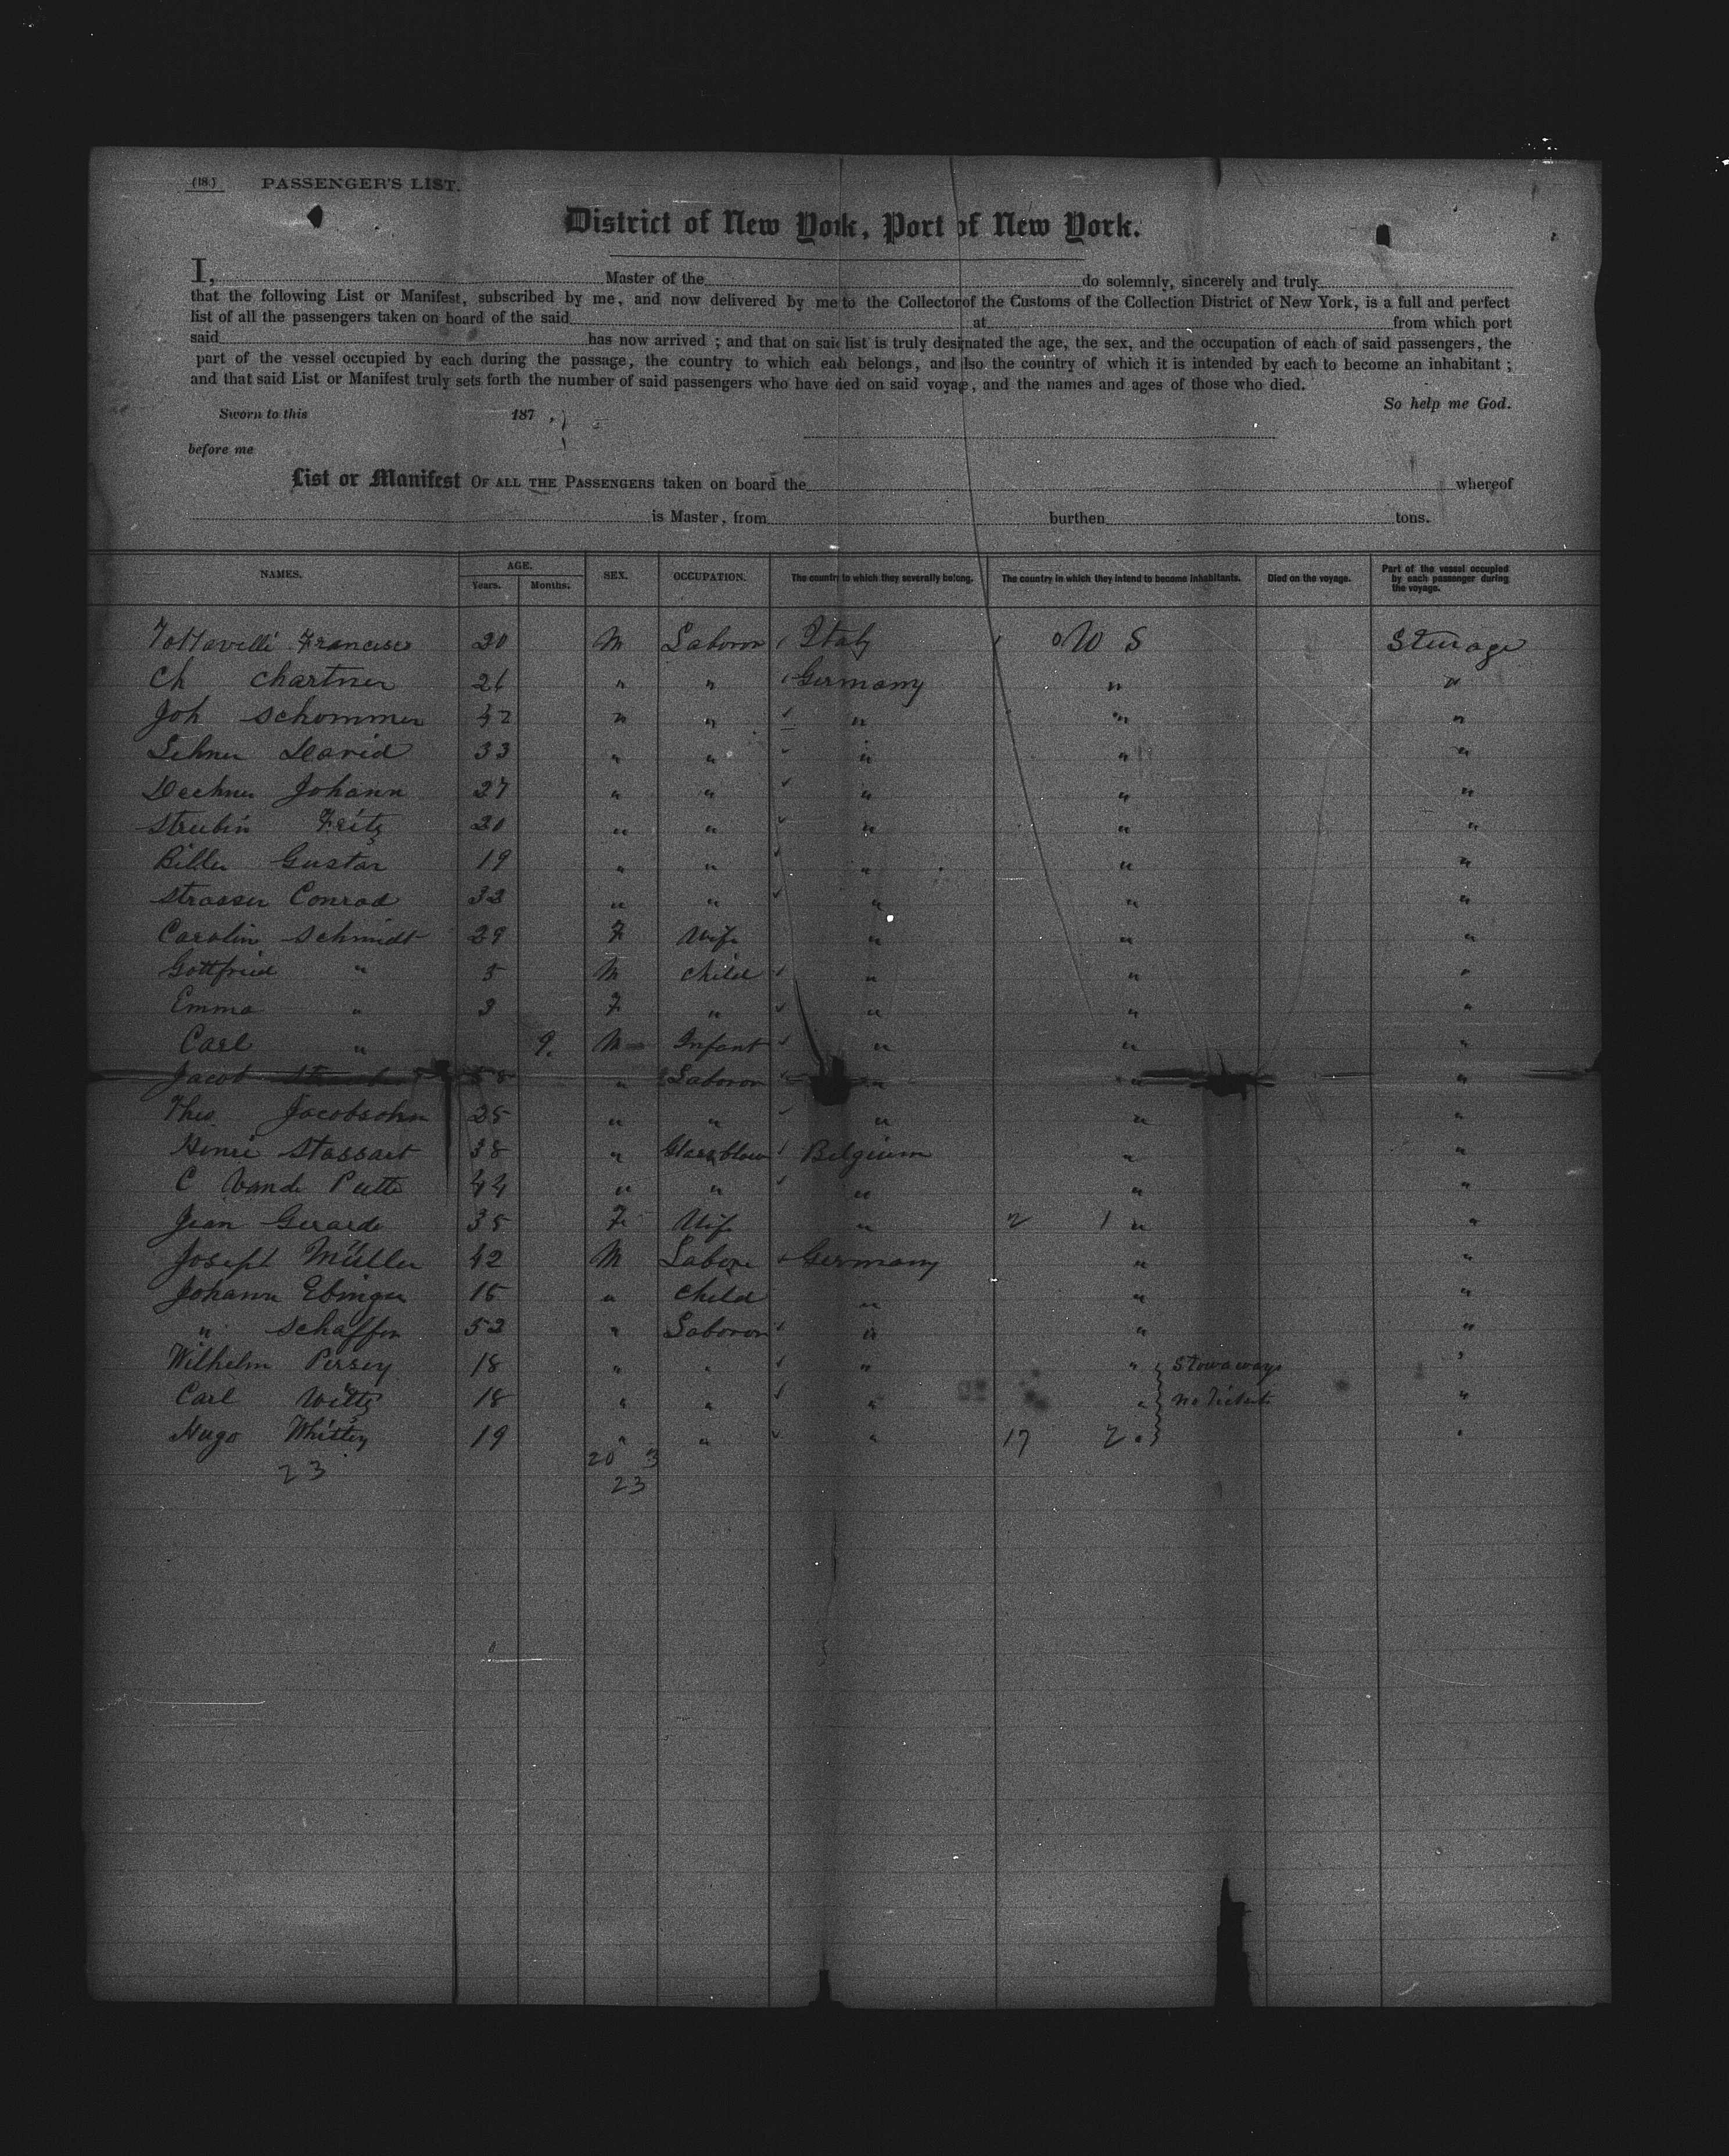 (18.) PASSENGER'S LIST.
District of New York, Port of New York.
I, Master of the do solemnly, sincerely and truly
that the following List or Manifest, subscribed by me, and now delivered by me to the Collector of the Customs of the Collection District of New York, is a full and perfect
list of all the passengers taken on board of the said at from which port
said has now arrived ; and that on said list is truly designated the age, the sex, and the occupation of each of said passengers, the
part of the vessel occupied by each during the passage, the country to which each belongs, and also the country of which it is intended by each to become an inhabitant ;
and that said List or Manifest truly sets forth the number of said passengers who have died on said voyage, and the names and ages of those who died.
So help me God.
Sworn to this 187
before me
List or Manifest OF ALL THE PASSENGERS taken on board the whereof
is Master, from burthen tons.
NAMES. AGE. Years. Months. SEX. OCCUPATION. The country to which they severally belong. The country in which they intend to become inhabitants. Died on the voyage. Part of the vessel occupied by each passenger during the voyage.
Francisco 20 M Laboror Italy S
Ch Chartner 26 " " Germany " "
Joh Schommer 42 " " " " "
Lehner David 33 " " " " "
Dechner Johann 27 " " " " "
Strubin Fritz 20 " " " " "
Biller Gustav 19 " " " " "
Strasser Conrad 32 " " " " "
Carolin Schmidt 29 F Wife " " "
Gottfried " 5 M Child " " "
Emma " 3 F " " " "
Carl " 9. M Infant " " "
Jacob 58 " Laboror " " "
Theo Jacobsohn 25 " " " " "
Henri Stassart 38 " Glassblow Belgium " "
C Vande Putte 44 " " " " "
Jean Gerarde 35 F Wife " 2 1 " "
Joseph Müller 42 M Labore Germany " "
Johann Ebinger 15 " Child " " "
" Schaffer 52 " Laboror " " "
Wilhelm Persey 18 " " " " Stowaways "
Carl Wittz 18 " " " " no Tickets "
Hugo 19 " " " 17 2 " "
23 20 3
23